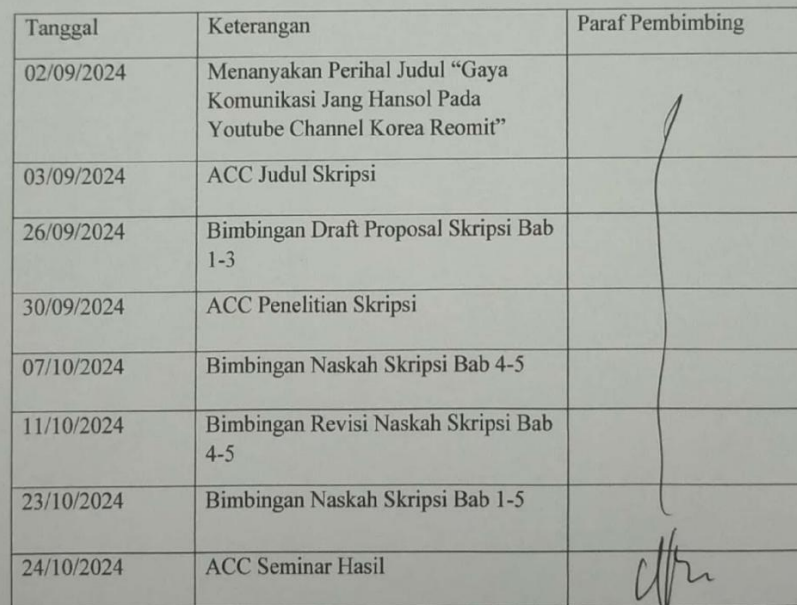 Tanggal Keterangan Paraf Pembimbing
02/09/2024 Menanyakan Perihal Judul “Gaya
Komunikasi Jang Hansol Pada
Youtube Channel Korea Reomit”
03/09/2024 ACC Judul Skripsi
26/09/2024 Bimbingan Draft Proposal Skripsi Bab
1-3
30/09/2024 ACC Penelitian Skripsi
07/10/2024 Bimbingan Naskah Skripsi Bab 4-5
11/10/2024 Bimbingan Revisi Naskah Skripsi Bab
4-5
23/10/2024 Bimbingan Naskah Skripsi Bab 1-5
24/10/2024 ACC Seminar Hasil